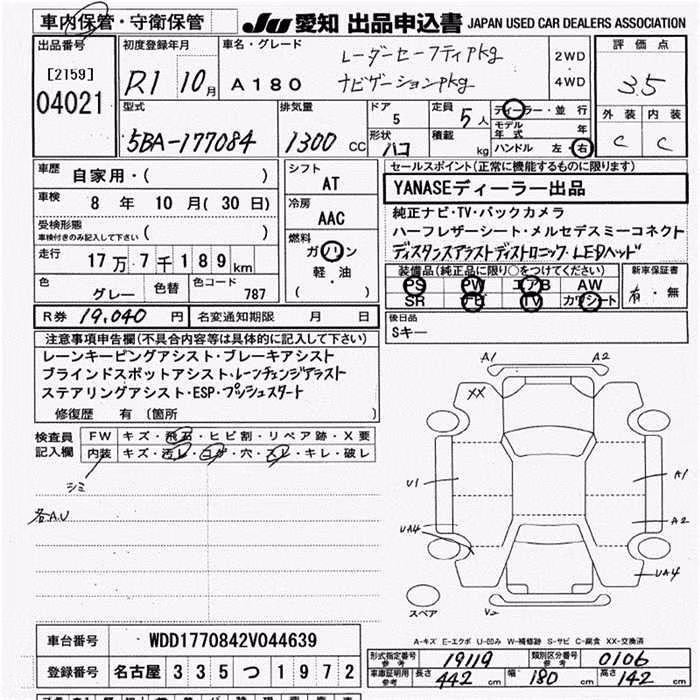 車内保管・守衛保管
JU 愛知 出品申込書 JAPAN USED CAR DEALERS ASSOCIATION
出品番号
[2159]
04021
初度登録年月
R1 10月
車名・グレード
A180
レーダーセーフティPkg
ナビゲーションpkg
2WD
4WD
評価点
3.5
型式
5BA-177084
排気量
1300 CC
ドア
5
形状
ハコ
定員
5人
積載
kg
ディーラー・並行
モデル年式 年
ハンドル 左・右
外装 内装
C C
車歴
自家用・( )
車検
8 年 10 月( 30 日)
受検形態
車検付きのみ記入して下さい( )
走行
17万7千189km
色
グレー
色替
色コード
787
シフト
AT
冷房
AAC
燃料
ガソリン
軽・油
( )
セールスポイント(正常に機能するものに限ります)
YANASEディーラー出品
純正ナビ・TV・バックカメラ
ハーフレザーシート・メルセデスミーコネクト
ディスタンスアラストディストロニック・LEDヘッド
装備品(純正品に限り○をつけてください)
PS PW エアB AW
SR ナビ TV カワシート
新車保証書
有・無
R券 19,040 円
名変通知期限 月 日
後日品
Sキー
注意事項申告欄(不具合内容等は具体的に記入して下さい)
レーンキーピングアシスト・ブレーキアシスト
ブラインドスポットアシスト・レーンチェンジアラスト
ステアリングアシスト・ESP・プッシュスタート
修復歴 有 〔箇所 〕
検査員記入欄
FW キズ・飛石・ヒビ割・リペア跡・X要
内装 キズ・汚レ・コゲ・穴・スレ・キレ・破レ
シミ
各A.U
A1 A2
XX
U1 A1
A2
UA4
UA4
スペア
V2
A-キズ E-エクボ U-凹み W-補修跡 S-サビ C-腐食 XX-交換済
車台番号 WDD1770842V044639
登録番号 名古屋 335 つ 1972
形式指定番号 参考 19119
類別区分番号 参考 0106
車庫証明用 参考 長さ 442 cm 幅 180 cm 高さ 142 cm